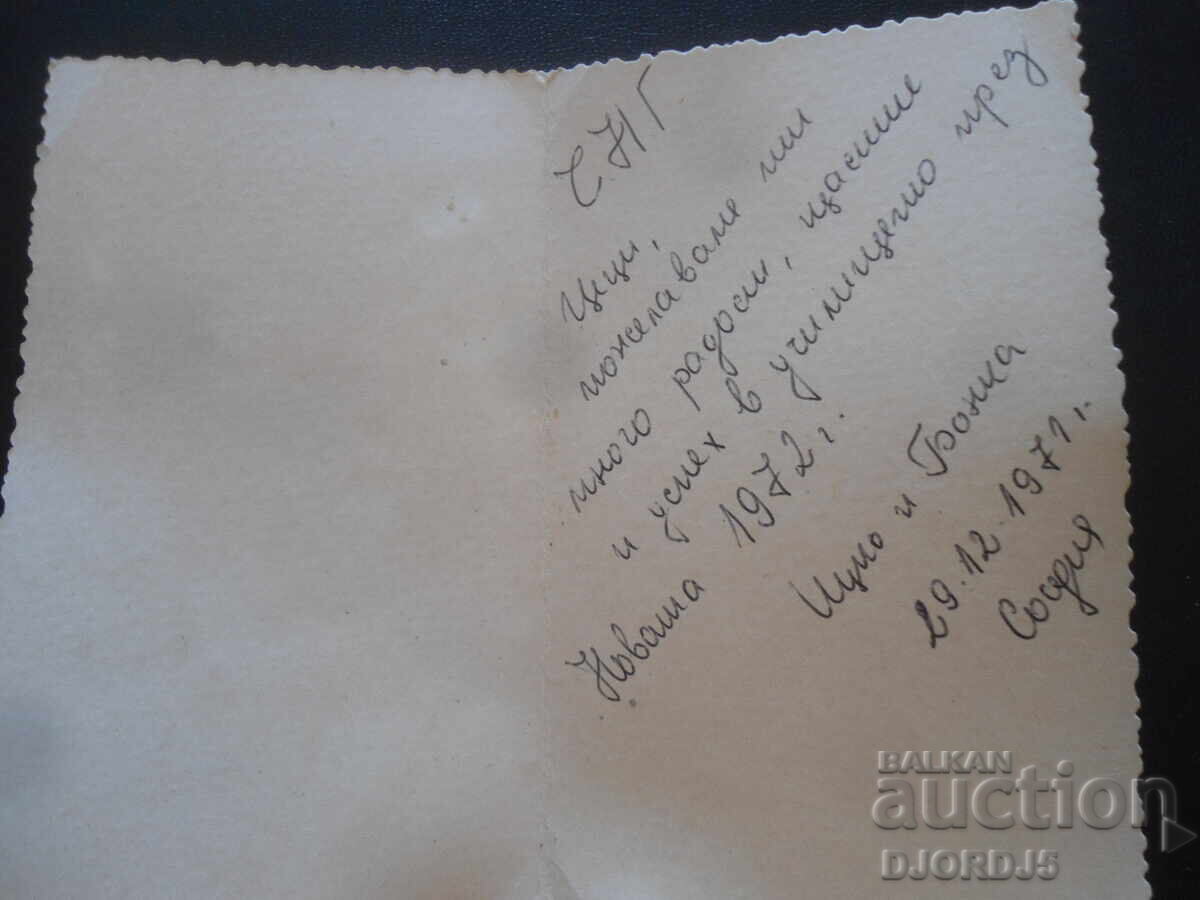 Ч.НГ
Цеци,
пожелаваме ти
много радост, щастие
и успех в училището през
Новата 1972 г.
Ицко и Бонка
29.12.1971 г.
София
BALKAN
auction
DJORDJ5